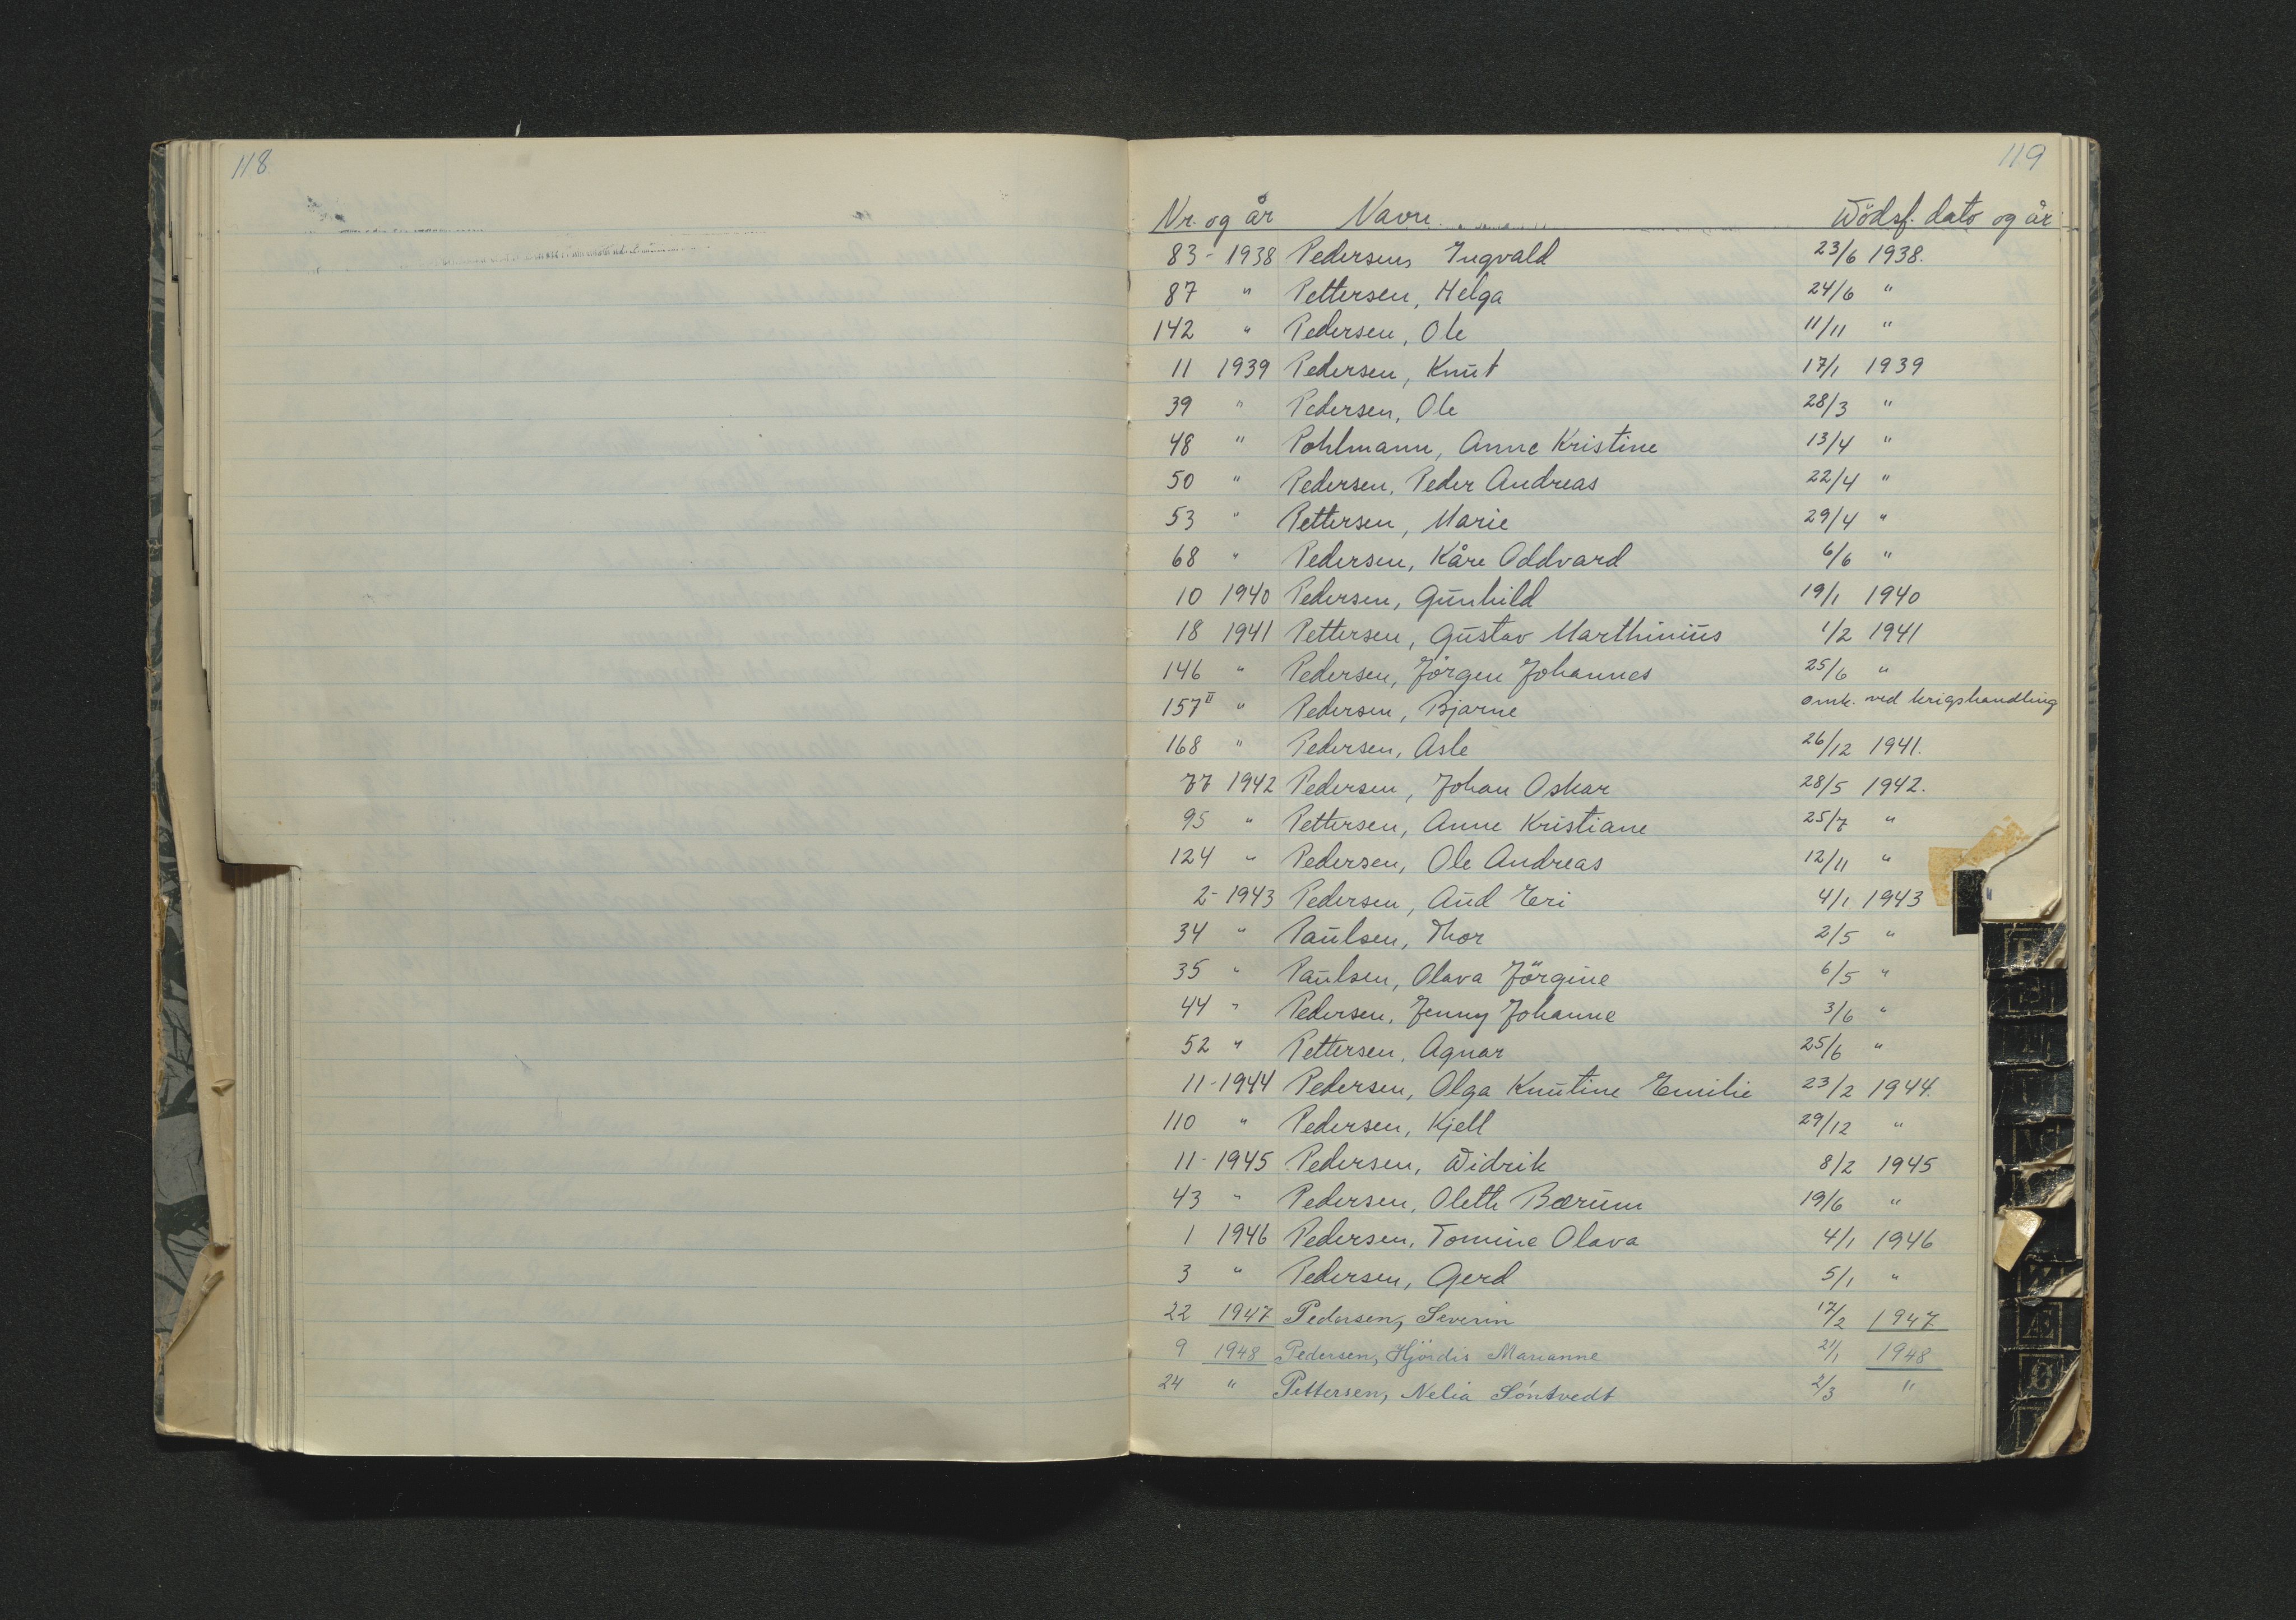 118.
119
Nr. og år Navn Dödsf. dato og år
83 - 1938 Pedersen, Ingvald 23/6 1938.
87 " Pettersen, Helga 24/6 "
142 " Pedersen, Ole 11/11 "
11 1939 Pedersen, Knut 17/1 1939
39 " Pedersen, Ole 28/3 "
48 " Pohlmann, Anne Kristine 13/4 "
50 " Pedersen, Peder Andreas 22/4 "
53 " Pettersen, Marie 29/4 "
68 " Pedersen, Kåre Oddvard 6/6 "
10 1940 Pedersen, Gunhild 19/1 1940
18 1941 Pettersen, Gustav Marthinius 1/2 1941
146 " Pedersen, Jörgen Johannes 25/6 "
157 II " Pedersen, Bjarne omk. ved krigshandling
168 " Pedersen, Asle 26/12 1941.
77 1942 Pedersen, Johan Oskar 28/5 1942.
95 " Pettersen, Anne Kristiane 25/7 "
124 " Pedersen, Ole Andreas 12/11 "
2 - 1943 Pedersen, Aud Eri 4/1 1943
34 " Paulsen, Thor 2/5 "
35 " Paulsen, Olava Jörgine 6/5 "
44 " Pedersen, Jenny Johanne 3/6 "
52 " Pettersen, Agnar 25/6 "
11 - 1944 Pedersen, Olga Knutine Emilie 23/2 1944.
110 " Pedersen, Kjell 29/12 "
11 - 1945 Pedersen, Didrik 8/2 1945
43 " Pedersen, Olette Bærum 19/6 "
1 1946 Pedersen, Tomine Olava 4/1 1946
3 " Pedersen, Gerd 5/1 "
22 1947 Pedersen, Severin 17/2 1947
9 1948 Pedersen, Hjördis Marianne 21/1 1948
24 " Pettersen, Nelia Söntvedt 2/3 "
U
Æ
Ø